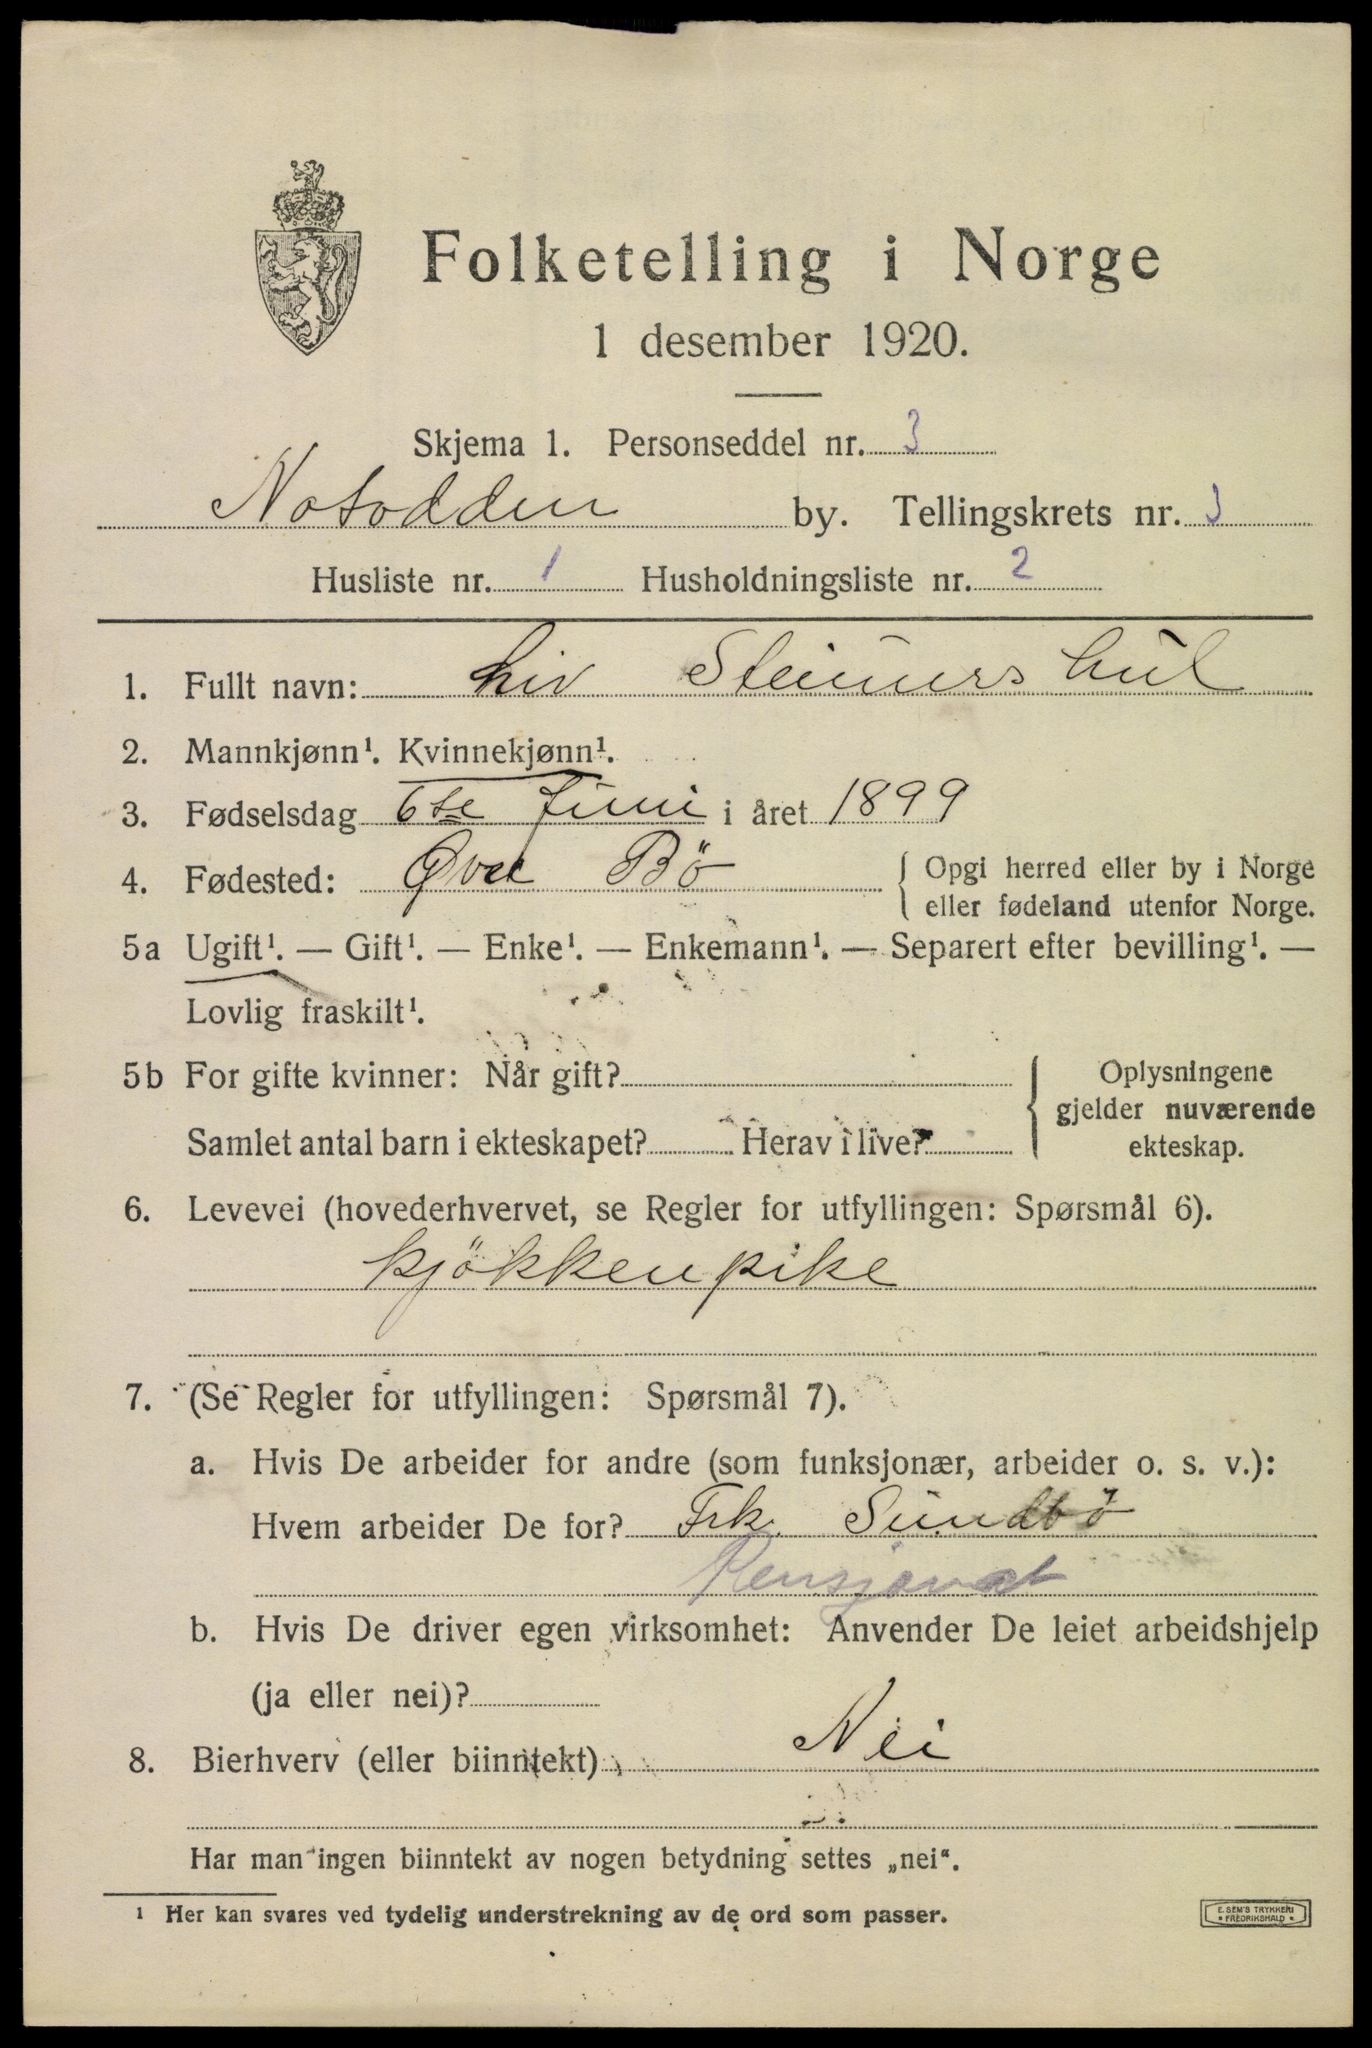 Folketelling i Norge
1 desember 1920.
Skjema 1. Personseddel nr. 3
Notodden by. Tellingskrets nr. 3
Husliste nr. 1 Husholdningsliste nr. 2
1. Fullt navn: Liv Steinershül
2. Mannkjønn¹. Kvinnekjønn¹.
3. Fødselsdag 6te Juni i året 1899
4. Fødested: Øvre Bö { Opgi herred eller by i Norge
eller fødeland utenfor Norge.
5a Ugift¹. — Gift¹. — Enke¹. — Enkemann¹. — Separert efter bevilling¹. —
Lovlig fraskilt¹.
5b For gifte kvinner: Når gift? { Oplysningene
gjelder nuværende
Samlet antal barn i ekteskapet? Herav i live? ekteskap.
6. Levevei (hovederhvervet, se Regler for utfyllingen: Spørsmål 6).
kjökkenpike
7. (Se Regler for utfyllingen: Spørsmål 7).
a. Hvis De arbeider for andre (som funksjonær, arbeider o. s. v.):
Hvem arbeider De for? Frk. Sundbö
Pensjonat
b. Hvis De driver egen virksomhet: Anvender De leiet arbeidshjelp
(ja eller nei)?
8. Bierhverv (eller biinntekt) Nei
Har man ingen biinntekt av nogen betydning settes „nei“.
¹ Her kan svares ved tydelig understrekning av de ord som passer.
E. SEM'S TRYKKERI
• FREDRIKSHALD •